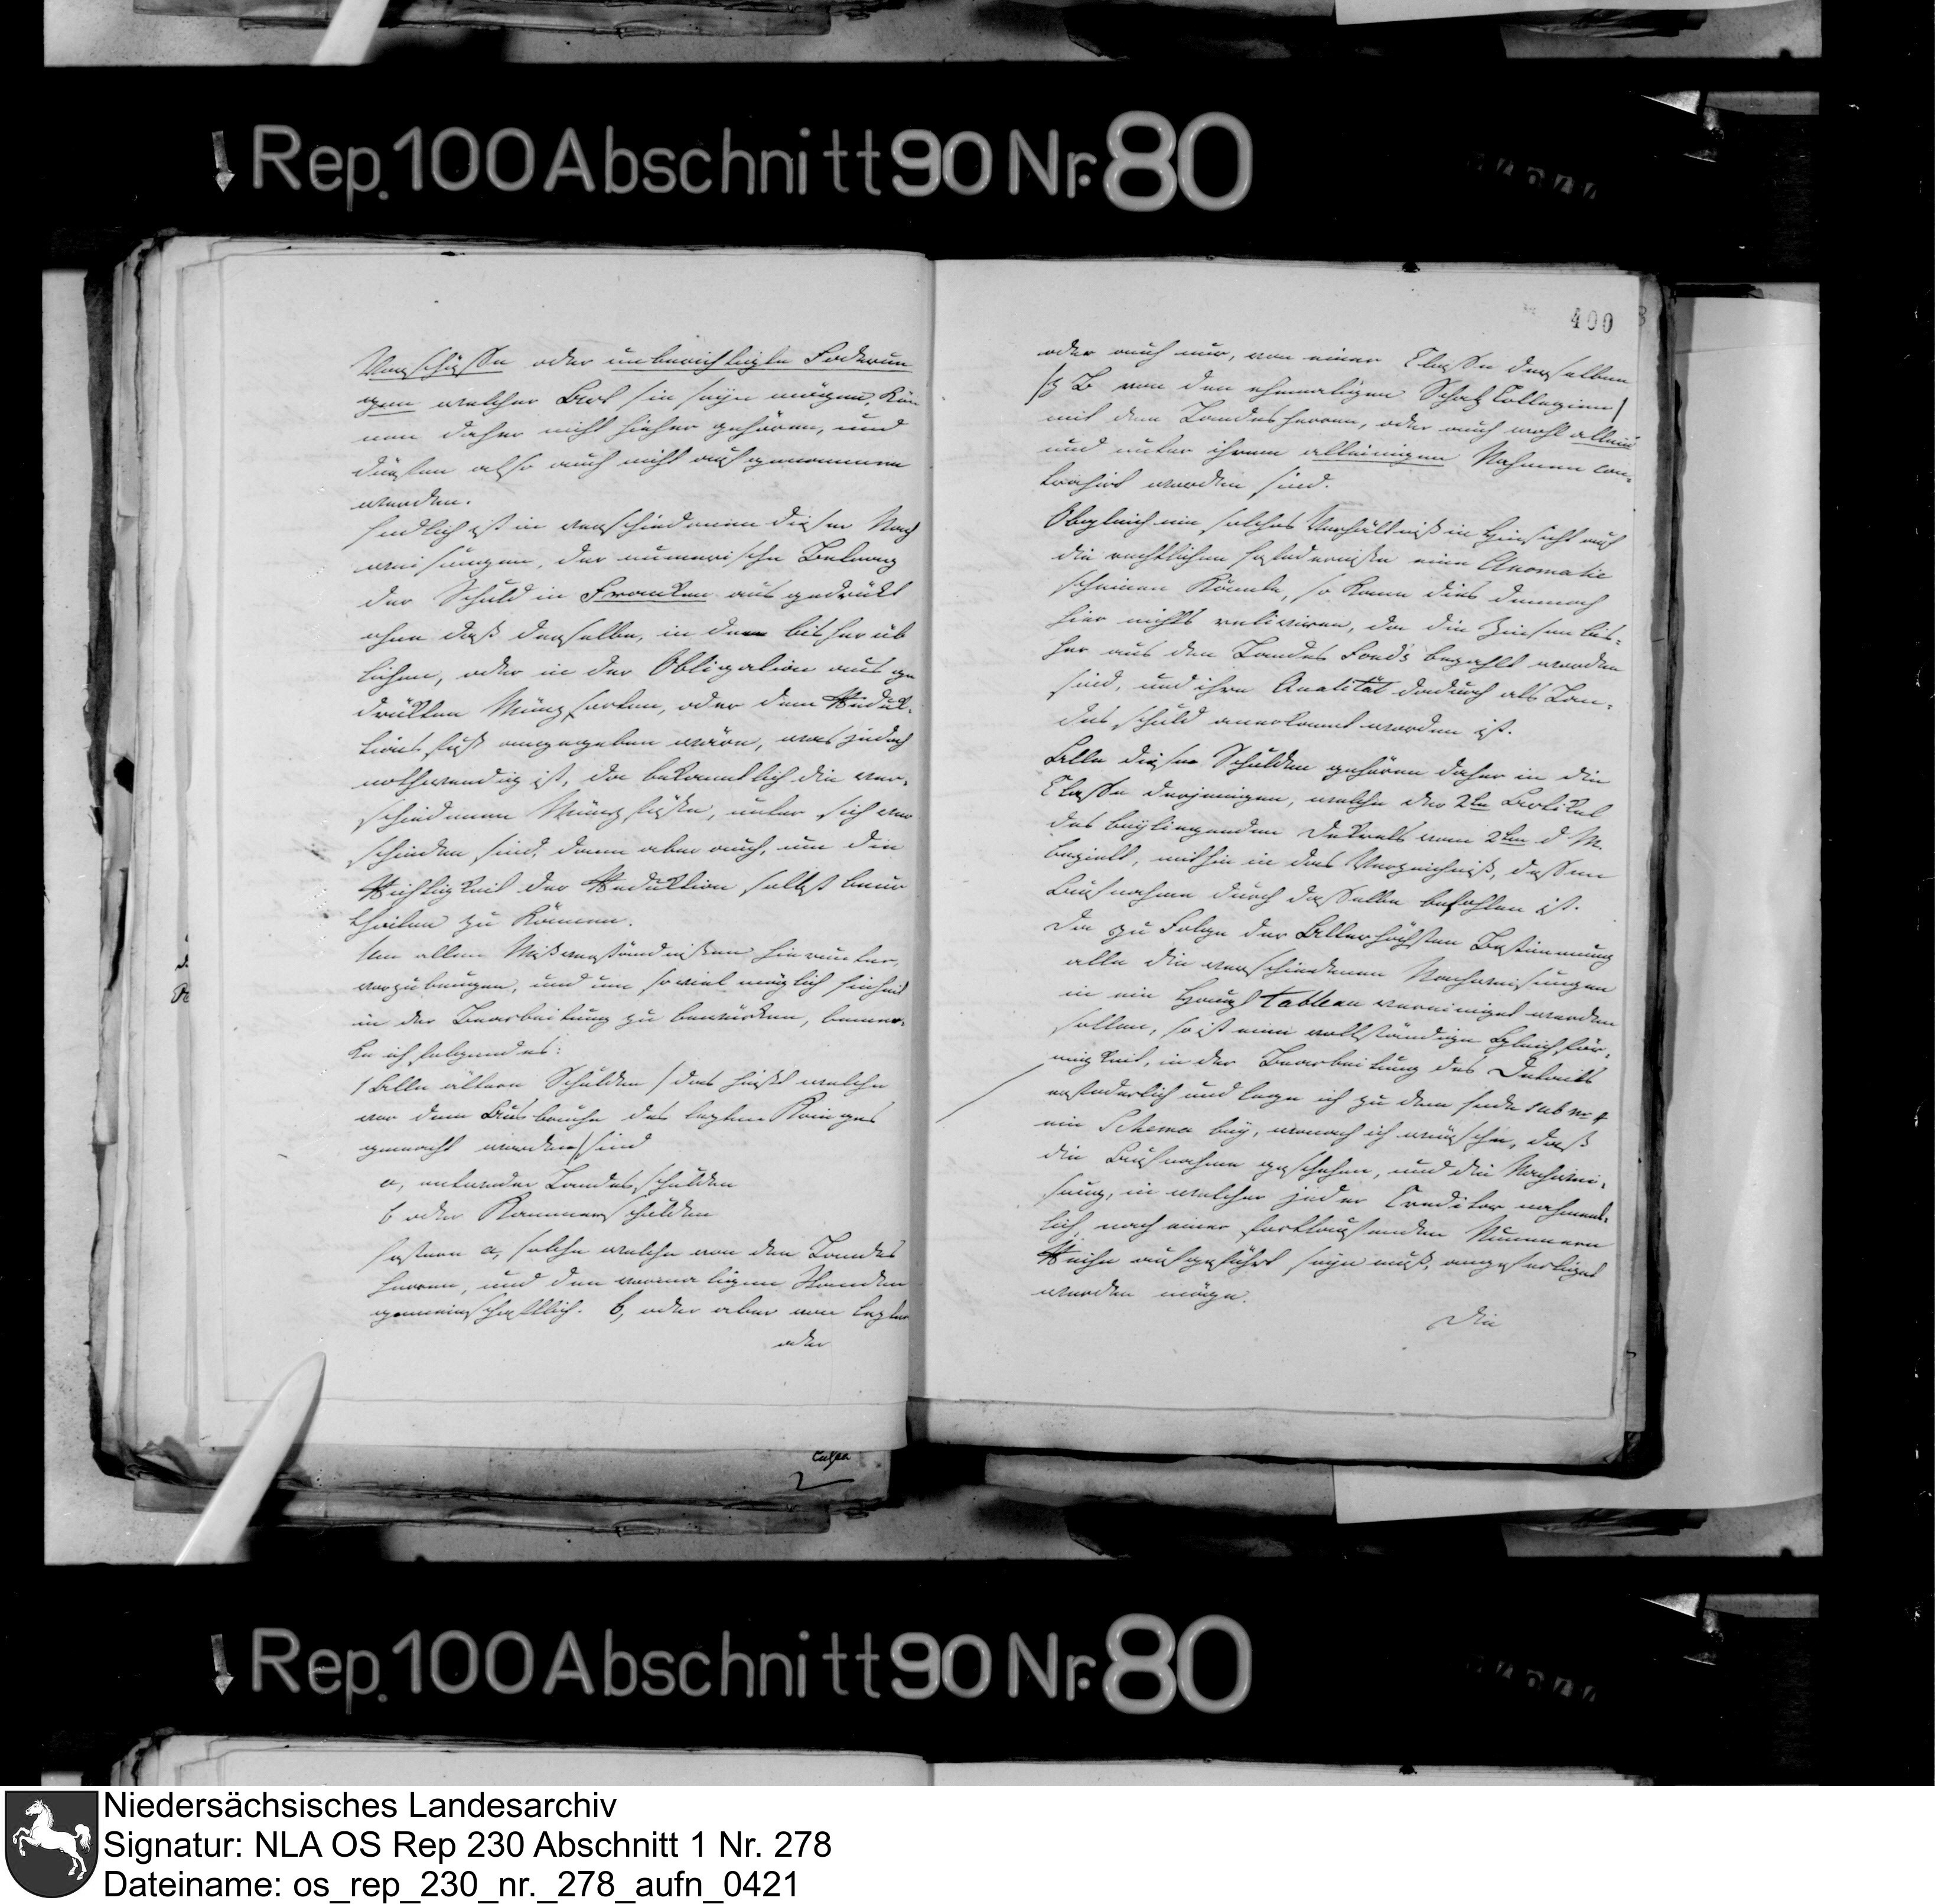 Rep. 100 Abschnitt 90 Nr. 80
Vorschüsse oder unberichtigte Forderun
gen welcher Art sie seyn mögen, kön
nen daher nicht hieher gehören, und
dürfen also auch nicht aufgenommen
werden.
Endlich ist in verschiedenen dieser Nach
weisungen, der numerische Betrag
der Schuld in Franken ausgedrückt
ohne daß derselbe, in dem bisher üb
lichen, oder in der Obligation ausge
drückten Münzsorten, oder dem Reduk-
tions fuß angegeben wäre, was jedoch
nothwendig ist, da bekanntlich die ver-
schiedenen Münzfüße, unter sich ver
schieden sind, dann aber auch, um die
Richtigkeit der Reduktion selbst beur
theilen zu können.
Um allen Mißverständnißen hierunter,
vorzubeugen, und um soviel möglich Einheit
in der Bearbeitung zu bewürken, bemer-
ke ich folgendes:
1 Alle ältern Schulden / das heißt welche
vor dem Ausbruche des letzten Krieges
gemacht worden / sind
a, entweder Landesschulden
b oder Kammerschulden
Erstere a, solche welche von den Landes
herren, und den vormaligen Ständen
gemeinschaftlich. b, oder aber von letztern
oder
Culpa
400
oder auch nur, von einer Classe derselben
/z B von den ehemaligen Schatz Collegien/
mit dem Landesherren, oder auch wohl allein
und unter ihrem alleinigen Nahmen con-
trahirt worden sind.
Obgleich ein solches Verhältniß in Hinsicht auf
die rechtlichen Erforderniße eine Anomalie
scheinen könnte, so kann dies dennoch
hier nichts releviren, da die Zinsen bis-
her aus den Landes Fond's bezahlt worden
sind, und ihre Qualität dadurch als Lan-
desschuld anerkannt worden ist.
Alle diese Schulden gehören daher in die
Classe derjenigen, welche der 2te Artikel
des beyliegenden Dekrets vom 2ten d M.
bezielt, mithin in das Verzeichniß, dessen
Aufnahme durch dasselbe befohlen ist.
Da zu Folge der Allerhöchsten Bestimmung
alle die verschiedenen Nachweisungen
in ein Haupt tableau vereiniget werden
sollen, so ist eine vollständige Gleichför-
migkeit, in der Bearbeitung des Details
erforderlich und lege ich zu dem Ende sub
ein Schema bey, wonach ich wünsche, daß
die Aufnahme geschehen, und die Nachwei-
sung, in welcher jeder Creditor nahment-
lich, nach einer fortlaufenden Nummern
Reihe aufgeführt seyn muß, angefertiget
werden möge.
Die
Rep. 100 Abschnitt 90 Nr. 80
Niedersächsisches Landesarchiv
Signatur: NLA OS Rep 230 Abschnitt 1 Nr. 278
Dateiname: os_rep_230_nr._278_aufn_0421